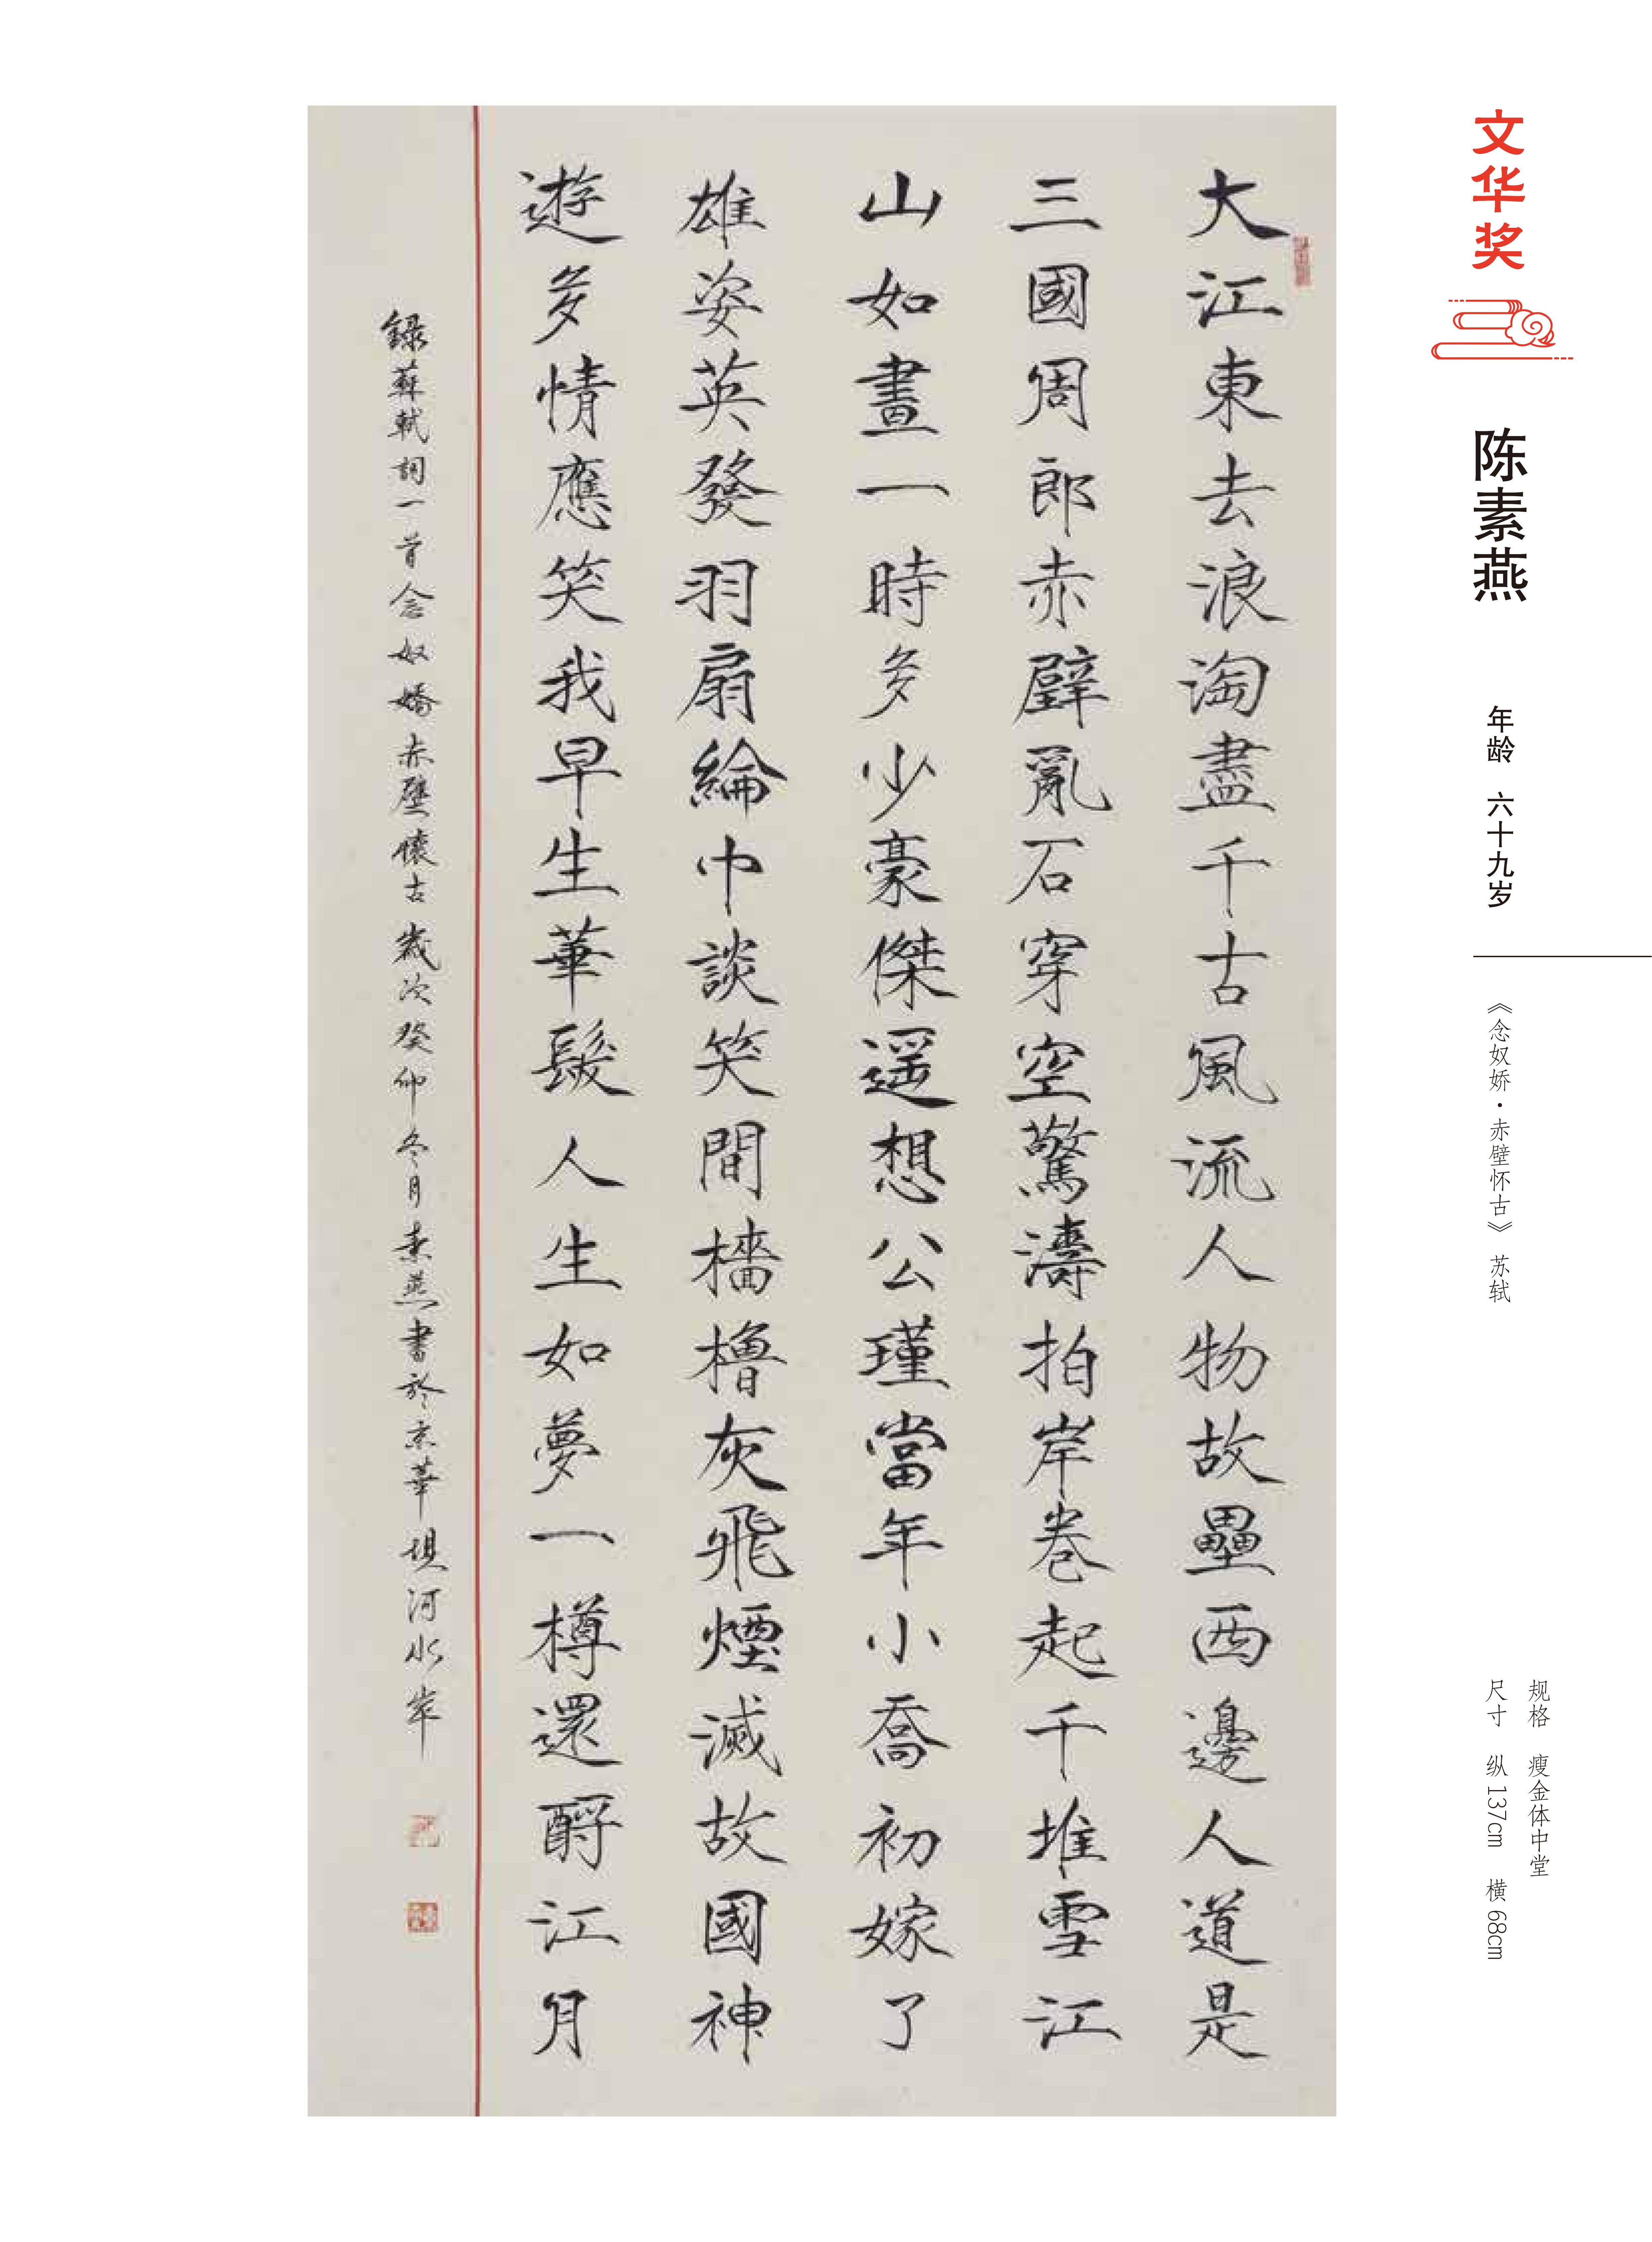 文华奖
陈素燕
年龄 六十九岁
《念奴娇·赤壁怀古》 苏轼
规格 瘦金体中堂
尺寸 纵137cm 横68cm
大江東去浪淘盡千古風流人物故壘西邊人道是
三國周郎赤壁亂石穿空驚濤拍岸卷起千堆雪江
山如畫一時多少豪傑遥想公瑾當年小喬初嫁了
雄姿英發羽扇綸巾談笑間檣櫓灰飛煙滅故國神
遊多情應笑我早生華髮人生如夢一樽還酹江月
錄蘇軾詞一首念奴嬌赤壁懷古歲次癸卯冬月素燕書於京華壩河水岸